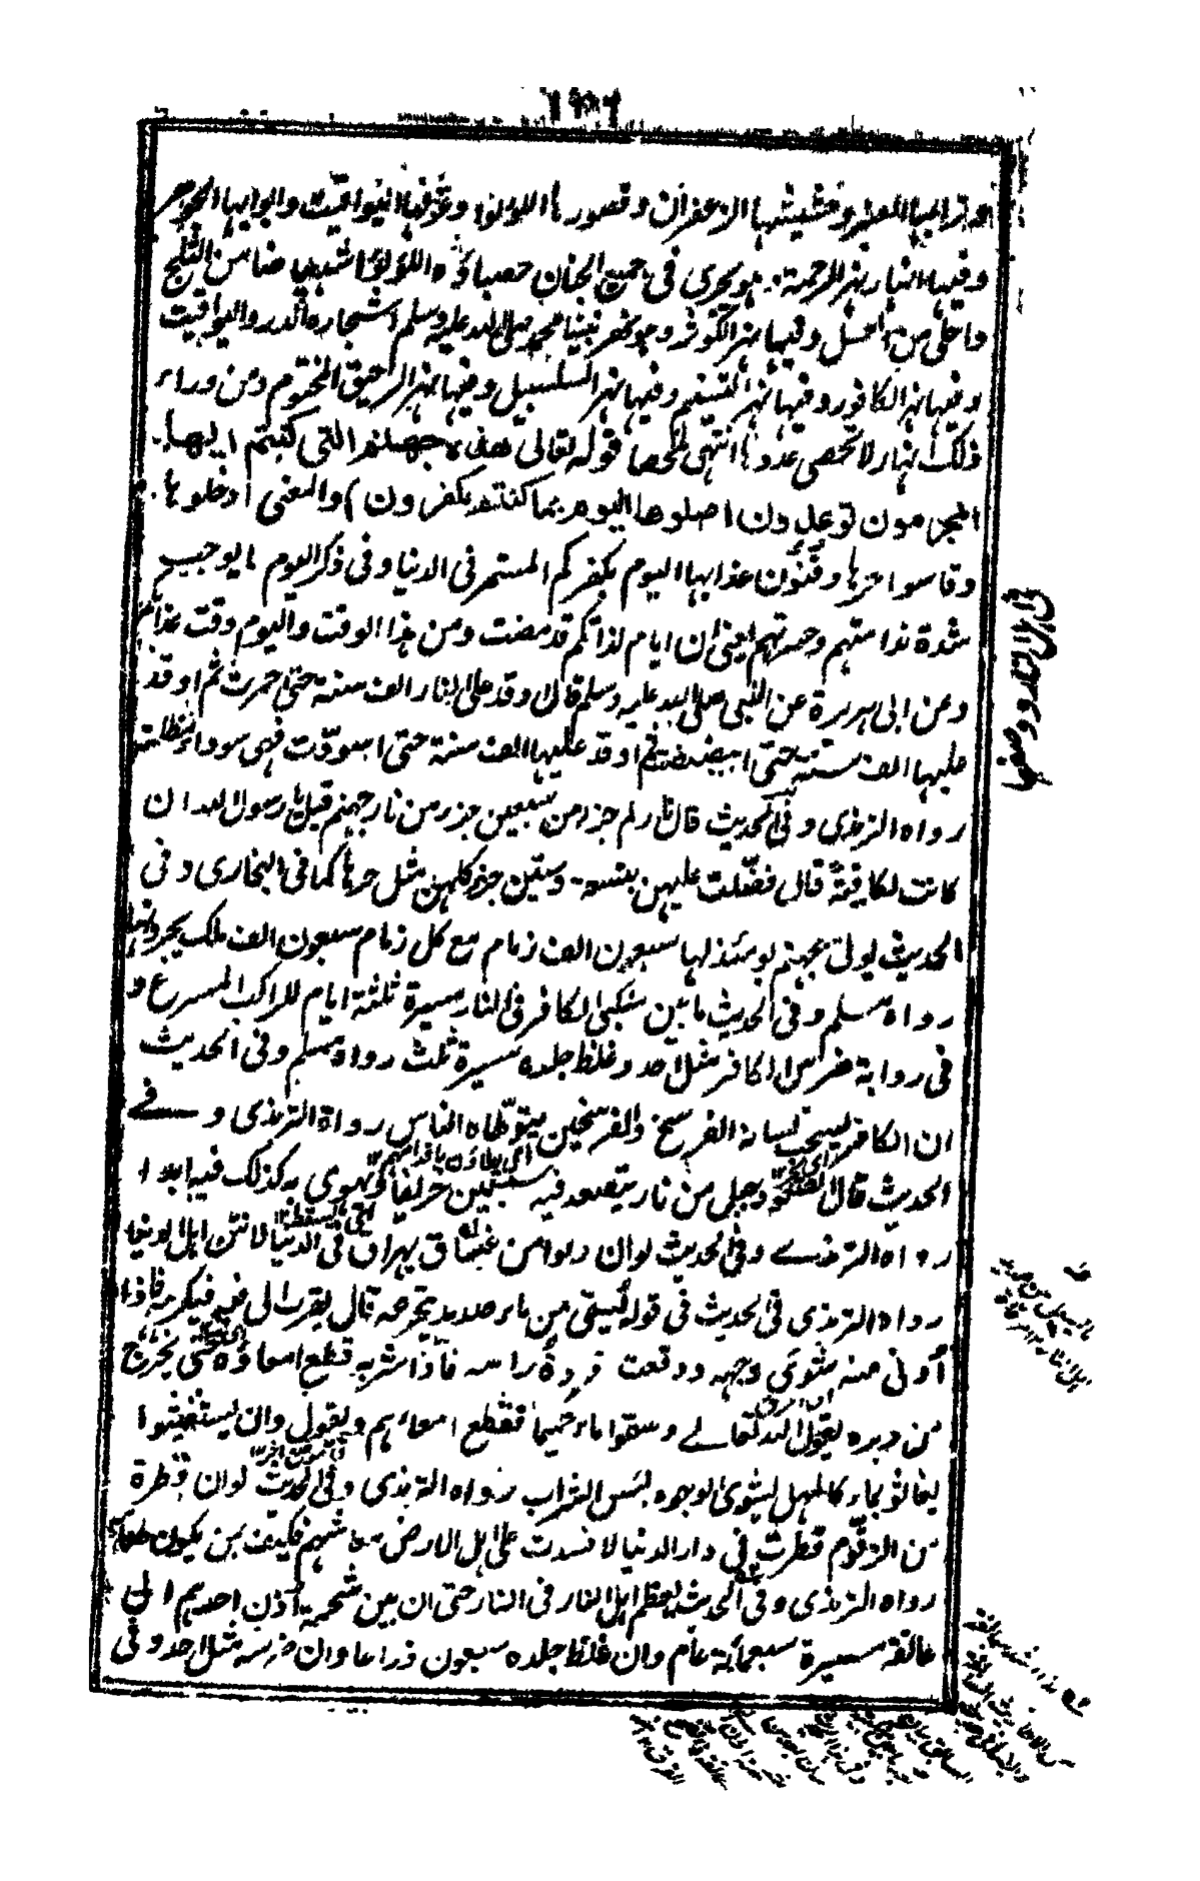 وترابها العنبر وحشيشها الزعفران وقصورها اللؤلؤ وغرفها اليواقيت وابوابها الجوهر
وفيها انهار نهر الرحمة وهو يجرى فى جميع الجنان حصباؤه اللؤلؤ اشد بياضا من الثلج
واحلى من العسل وفيها نهر الكوثر وهو نهر نبينا محمد صلى الله عليه وسلم اشجاره الدر واليواقيت
وفيها نهر الكافور وفيها نهر التسنيم وفيها نهر السلسبيل وفيها نهر الرحيق المختوم ومن وراء
ذلك انهار لا تحصى عددها انتهى ملخصا قوله تعالى هذه جهنم التى كنتم ايها
المجرمون توعدون اصلوها اليوم بما كنتم تكفرون) والمعنى ادخلوها
وقاسوا حرها وفنون عذابها اليوم بكفركم المستمر فى الدنيا وفى ذكر اليوم ما يوجب
شدة ندامتهم وحسرتهم يعنى ان ايام لذاتكم قد مضت ومن هذا الوقت واليوم وقت عذابكم
وعن ابى هريرة عن النبى صلى الله عليه وسلم قال اوقد على النار الف سنة حتى احمرت ثم اوقد
عليها الف سنة حتى ابيضت ثم اوقد عليها الف سنة حتى اسودت فهى سوداء مظلمة
رواه الترمذى وفى الحديث قال ناركم جزء من سبعين جزء من نار جهنم قيل يا رسول الله ان
كانت لكافية قال فضلت عليهن بتسعة وستين جزء كلهن مثل حرها كما فى البخارى وفى
الحديث يوتى بجهنم يومئذ لها سبعون الف زمام مع كل زمام سبعون الف ملك يجرونها
رواه مسلم وفى الحديث ما بين منكبى الكافر فى النار مسيرة ثلثة ايام للراكب المسرع و
فى رواية ضرس الكافر مثل احد وغلظ جلده مسيرة ثلث رواه مسلم وفى الحديث
ان الكافر ليسحب لسانه الفرسخ والفرسخين يتوطاه الناس رواة الترمذى وفے
اى يطاؤن باقدامهم
الحديث قال الصعود جبل من نار يتصعد فيه سبعين خريفا ويهوى به كذلك فيه ابدا
رواه الترمذے وفى الحديث لو ان دلوا من غساق يهراق فى الدنيا لانتن اهل الدنيا
رواه الترمذى فى الحديث فى قوله يسقى من ماء صديد يتجرعه قال يقرب الى فيه فيكرهه فاذا
أدنى منه شوى وجهه ووقعت فروة راسه فاذا شربه قطع امعاؤه حتى يخرج
من دبره يقول الله تعالے وسقوا ماء حميما فقطع امعائهم ويقول وان يستغيثوا
يغاثو بماء كالمهل يشوى الوجوه بئس الشراب رواه الترمذى وفى الحديث لو ان قطرة
من الزقوم قطرت فى دار الدنيا لافسدت على اهل الارض معايشهم فكيف بمن يكون طعامه
رواه الترمذى وفى الحديث يعظم اهل النار فى النار حتى ان بين شحمة أذن احدهم الى
عاتقه مسيرة سبعمائة عام وان غلظ جلده سبعون ذراعا وان ضرسه مثل احد وفى